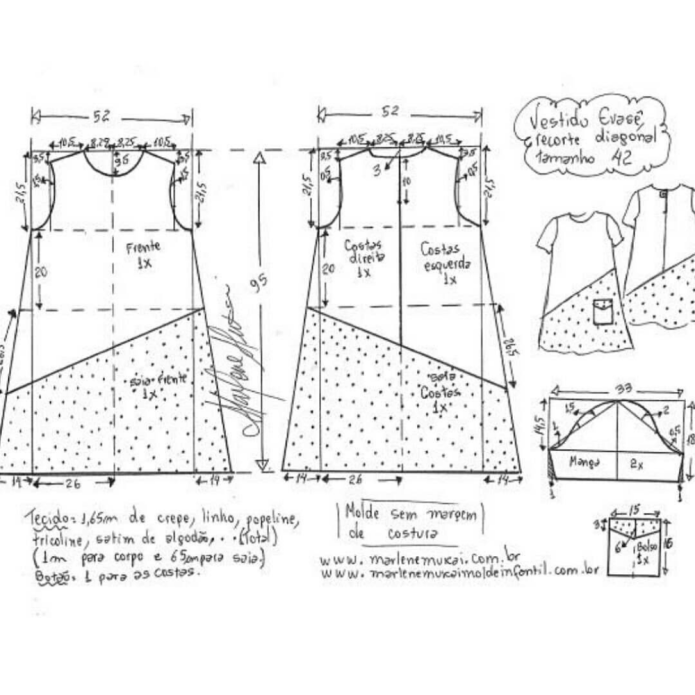 Vestido Evasê,
recorte diagonal
tamanho 42
52
10,5 8,25 8,25 10,5
3,5 9,5 3,5
21,5 21,5
Frente
1x
20
95
26,5
Saia frente
1x
14 26 14
52
10,5 8,25 8,25 10,5
3
10
21,5 21,5
Costas
direita
1x
Costas
esquerda
1x
20
26,5
Saia
Costas
1x
14 26 14
33
1,5 2
14,5 0,5
1
Manga 2x
1 1
15
3
6 Bolso
1x
16
Tecido: 1,65m de crepe, linho, popeline,
tricoline, satim de algodão, . . (total)
(1m para corpo e 65cm para saia.)
Botão: 1 para as costas.
Molde sem margem
de costura
www.marlenemukai.com.br
www.marlenemukaimoldeinfantil.com.br